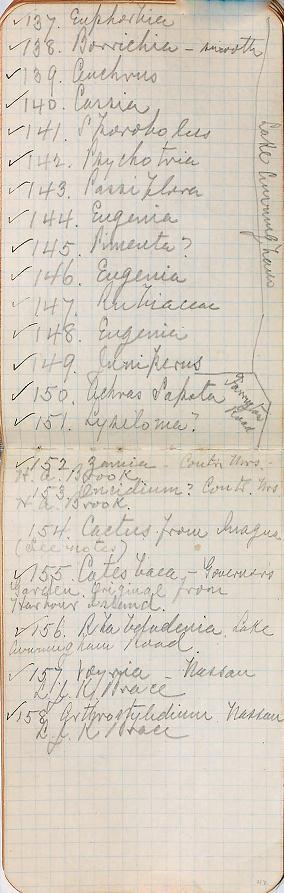 ✓137. Euphorbia
✓138. Borrichia - smooth
✓139. Cenchrus
✓140. Cassia
✓141. Sporobolus
✓142. Psychotria
✓143. Passiflora
✓144. Eugenia
✓145. Pimenta?
✓146. Eugenia
✓147. Rubiaceae
✓148. Eugenia
✓149. Juniperus
✓150. Achras Sapota
✓151. Lysiloma?
Lake Cunningham
Farrington
Road
✓152. Zamia - Contr. Mrs.
H. A. Brook.
✓153. Oncidium? Contr. Mrs
H. A. Brook.
154. Cactus from Inagua
(See notes)
✓155. Catesbaea, - Governors
Garden. Original from
Harbour Island.
✓156. Rhabdadenia. Lake
Cunningham Road.
✓157. Voyria - Nassau
L. J. K. Brace
✓158. Arthrostylidium. Nassau
L. J. K. Brace